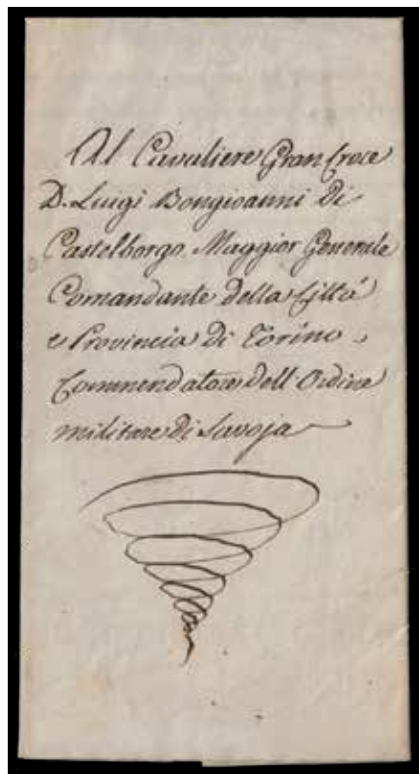 Al Cavaliere Gran Croce
D. Luigi Bongioanni Di
Castelborgo Maggior Generale
Comandante della Città
e Provincia di Torino,
Commendatore dell'Ordine
militare di Savoja